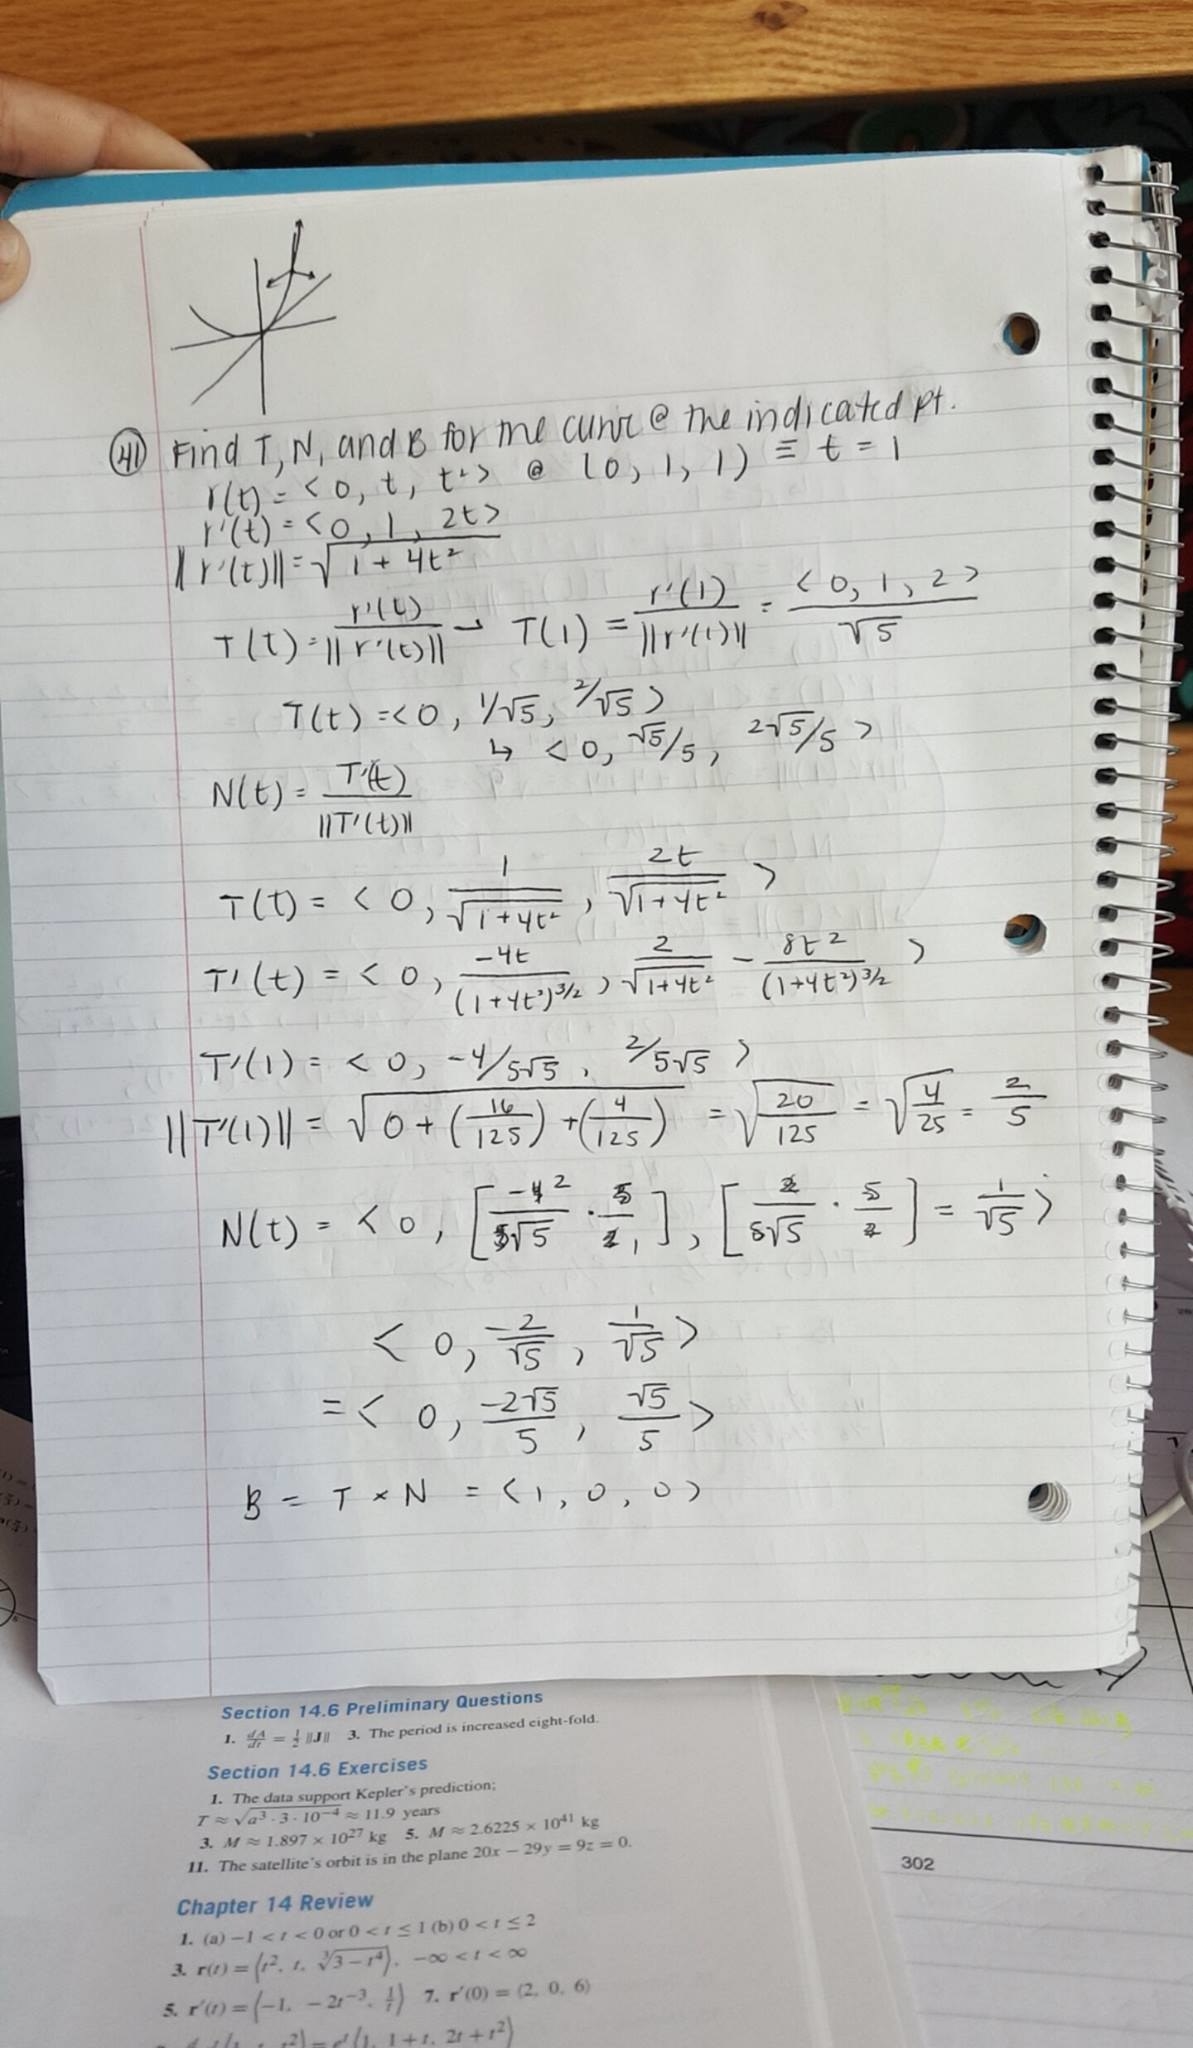 (41) Find T, N, and B for the curve @ the indicated pt.
r(t) = < 0, t, t² > @ (0, 1, 1) ≡ t = 1
r'(t) = < 0, 1, 2t >
||r'(t)|| = √(1 + 4t²)
T(t) = r'(t)/||r'(t)|| → T(1) = r'(1)/||r'(1)|| = < 0, 1, 2 >/√5
T(t) = < 0, 1/√5, 2/√5 >
↳ < 0, √5/5, 2√5/5 >
N(t) = T'(t)/||T'(t)||
T(t) = < 0, 1/√(1+4t²), 2t/√(1+4t²) >
T'(t) = < 0, -4t/(1+4t²)^3/2, 2/√(1+4t²) - 8t²/(1+4t²)^3/2 >
T'(1) = < 0, -4/5√5, 2/5√5 >
||T'(1)|| = √(0 + (16/125) + (4/125)) = √(20/125) = √(4/25) = 2/5
N(t) = < 0, [-4 2/5√5 · 5/2 1], [2/5√5 · 5/2] = 1/√5 >
< 0, -2/√5, 1/√5 >
= < 0, -2√5/5, √5/5 >
B = T × N = < 1, 0, 0 >
Section 14.6 Preliminary Questions
1. dA/dt = ½ ||J|| 3. The period is increased eight-fold.
Section 14.6 Exercises
1. The data support Kepler's prediction;
T ≈ √(a³ · 3 · 10⁻⁴) ≈ 11.9 years
3. M ≈ 1.897 × 10²⁷ kg 5. M ≈ 2.6225 × 10⁴¹ kg
11. The satellite's orbit is in the plane 20x − 29y + 9z = 0.
302
Chapter 14 Review
1. (a) −1 < t < 0 or 0 < t ≤ 1 (b) 0 < t ≤ 2
3. r(t) = ⟨t², t, ∛(3 − t⁴)⟩, −∞ < t < ∞
5. r'(t) = ⟨−1, −2t⁻³, 1/t⟩ 7. r'(0) = ⟨2, 0, 6⟩
⟨1, t, t²⟩ = eᵗ⟨1, 1 + t, 2t + t²⟩